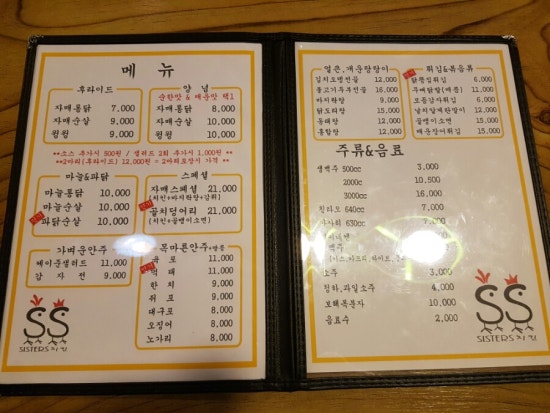 메 뉴
후라이드
자매통닭 7,000
자매순살 9,000
윙윙 9,000
양 념
순한맛 & 매운맛 택1
자매통닭 8,000
자매순살 10,000
윙윙 10,000
**소스 추가시 500원 / 샐러드 2회 추가시 1,000원**
**2마리(후라이드) 12,000원 = 2마리포장시 가격 **
마늘&파닭
마늘통닭 10,000
마늘순살 10,000
파닭순살 10,000
스페셜
자매스페셜 21,000
(치킨+바지락탕+감튀)
골치덩어리 21,000
(치킨+골뱅이소면)
가벼운안주
케이준샐러드 11,000
감 자 전 9,000
목마른안주+땅콩
육 포 11,000
먹 태 11,000
한 치 9,000
쥐 포 9,000
대구포 8,000
오징어 8,000
노가리 8,000
SISTERS 치킨
얼큰,개운탕탕이
김치오뎅전골 12,000
불고기두부전골 16,000
바지락탕 9,000
닭도리탕 15,000
동태탕 12,000
홍합탕 12,000
튀김&볶음류
닭똥집튀김 6,000
두빠닭발(매콤) 11,000
모듬감자튀김 8,000
날치알계란말이 12,000
골뱅이소면 15,000
해물모듬튀김 15,000
주류&음료
생맥주 500cc 3,000
2000cc 10,500
3000cc 16,000
맥주
소주 3,000
청하,과일소주 4,000
보해복분자 10,000
음료수 2,000
SISTERS 치킨